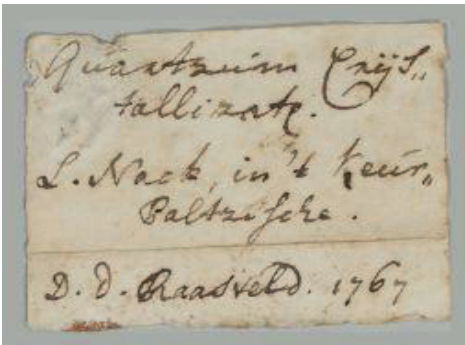 Quartzum Crijs„
tallizatz.
L. Nack, in 't Keur„
Paltzische.
D. d. Raasveld. 1767